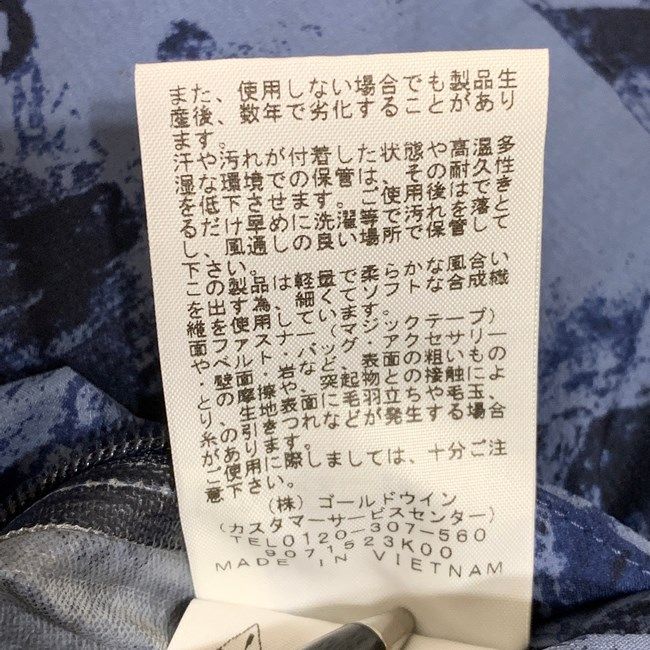 また、使用しない場合でも製品生
産後、数年で劣化することがあり
ます。
汗や汚れが付着した状態や高温多
湿な環境での保管は、その耐久性
を低下させます。ご使用後はでき
るだけ早めに洗濯等で汚れを落と
し、風通しの良い場所で保管して
下さい。
この製品は軽量で柔らかな風合い
を出す為、細くてソフトな合成繊
維を使用しています。
面ファスナー(マジックテープ)
やベルト・バッグ・アクセサリー
・壁面・岩など、表面の粗いもの
との摩擦や、突起物との接触によ
り、生地表面に毛羽立ちや毛玉、
糸の引きつれなどが発生する場合
があります。
ご使用に際しましては、十分ご注
意下さい。
(株)ゴールドウイン
(カスタマーサービスセンター)
TEL0120-307-560
9071523K00
MADE IN VIETNAM